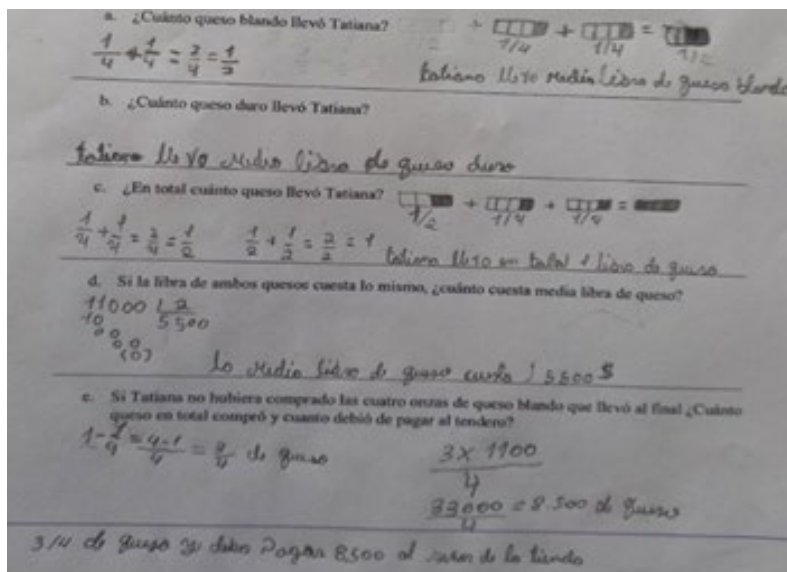 a. ¿Cuánto queso blando llevó Tatiana?
1/4 + 1/4 = 2/4 = 1/2
+ 1/4 + 1/4 = 1/2
tatiana llevo media libra de queso blando
b. ¿Cuánto queso duro llevó Tatiana?
tatiana llevo media libra de queso duro
c. ¿En total cuánto queso llevó Tatiana?
1/2 + 1/4 + 1/4 =
1/4 + 1/4 = 2/4 = 1/2 1/2 + 1/2 = 2/2 = 1 tatiana llevo en total 1 libra de queso
d. Si la libra de ambos quesos cuesta lo mismo, ¿cuánto cuesta media libra de queso?
11000 2
10 5500
00
00
(0)
la media libra de queso cuesta 5500 $
e. Si Tatiana no hubiera comprado las cuatro onzas de queso blando que llevó al final ¿Cuánto
queso en total compró y cuanto debió de pagar al tendero?
1 - 1/4 = 4-1/4 = 3/4 de queso
3 x 1100
4
33000 = 8.500 de queso
4
3/4 de queso y debe Pagar 8500 al de la tienda